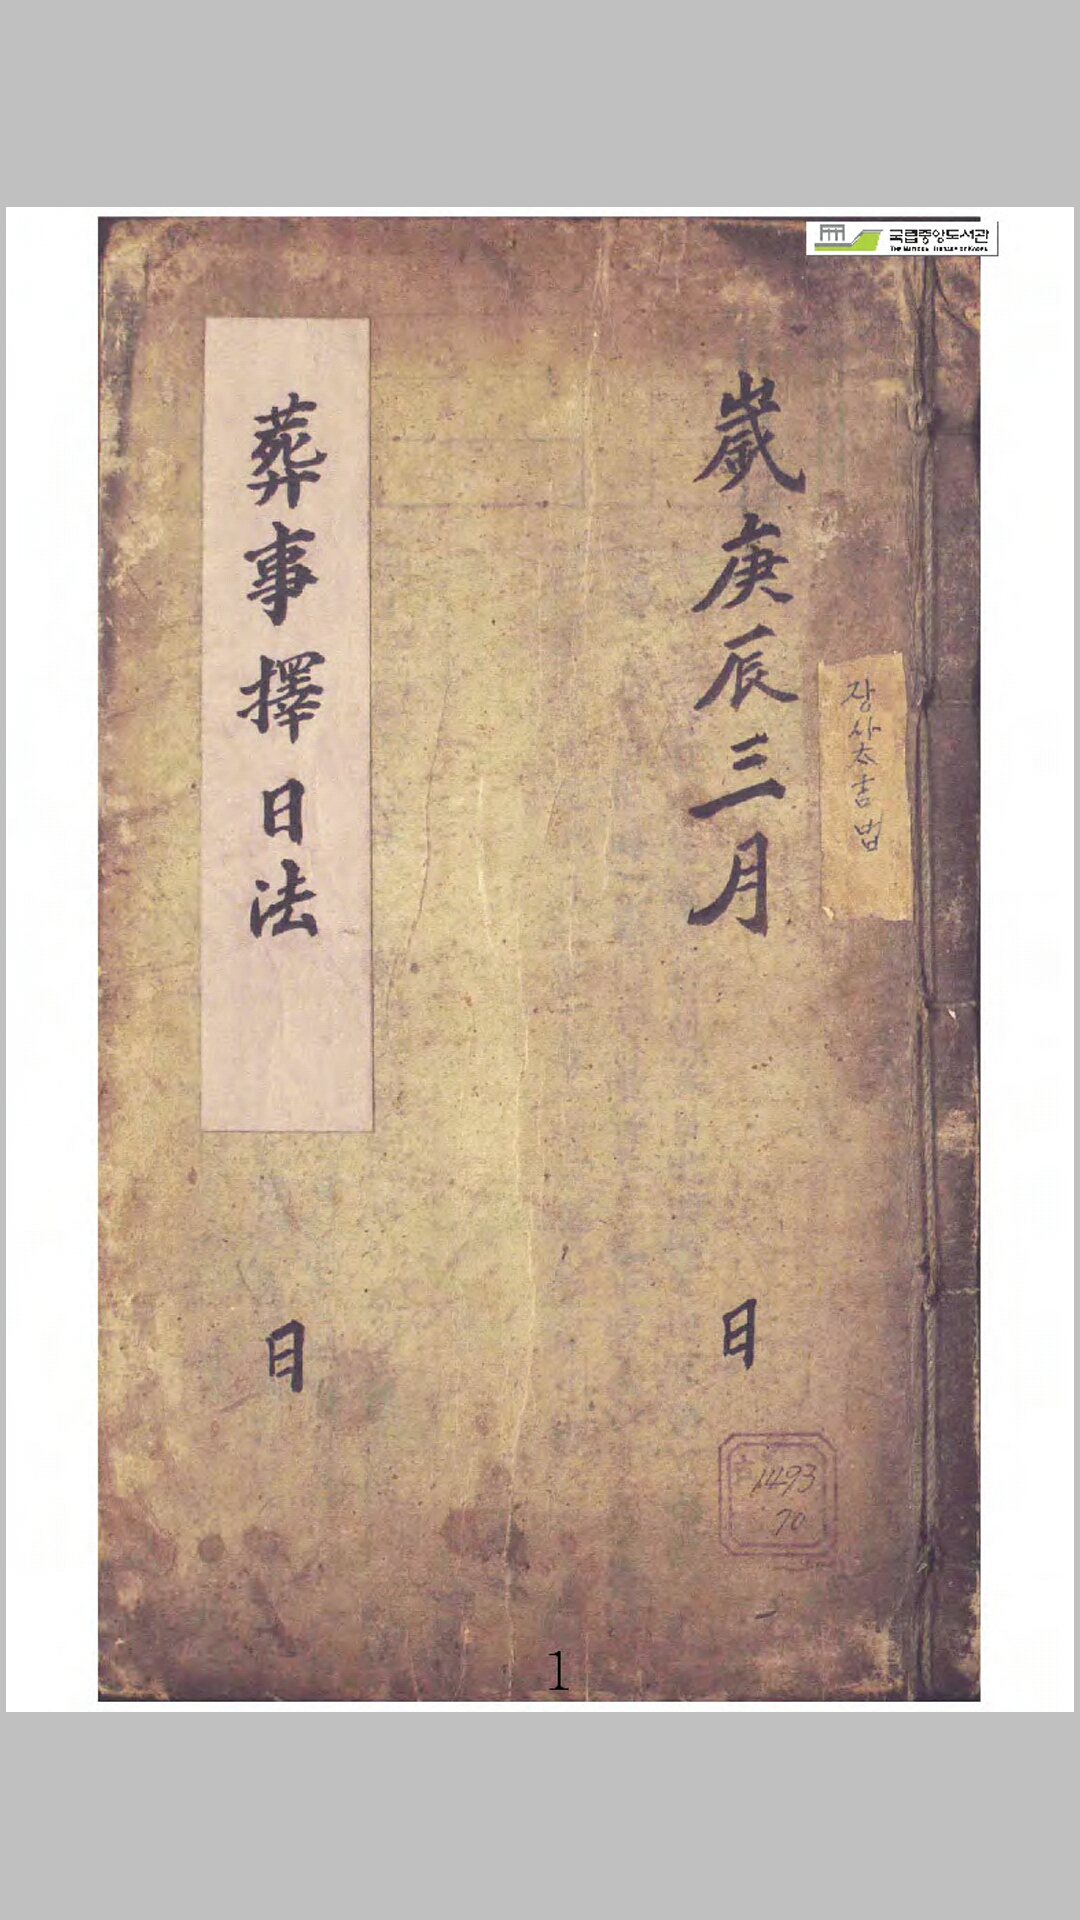 국립중앙도서관
THE NATIONAL LIBRARY OF KOREA
歲庚辰三月 日
장사太吉법
葬事擇日法
日
1493
70
1